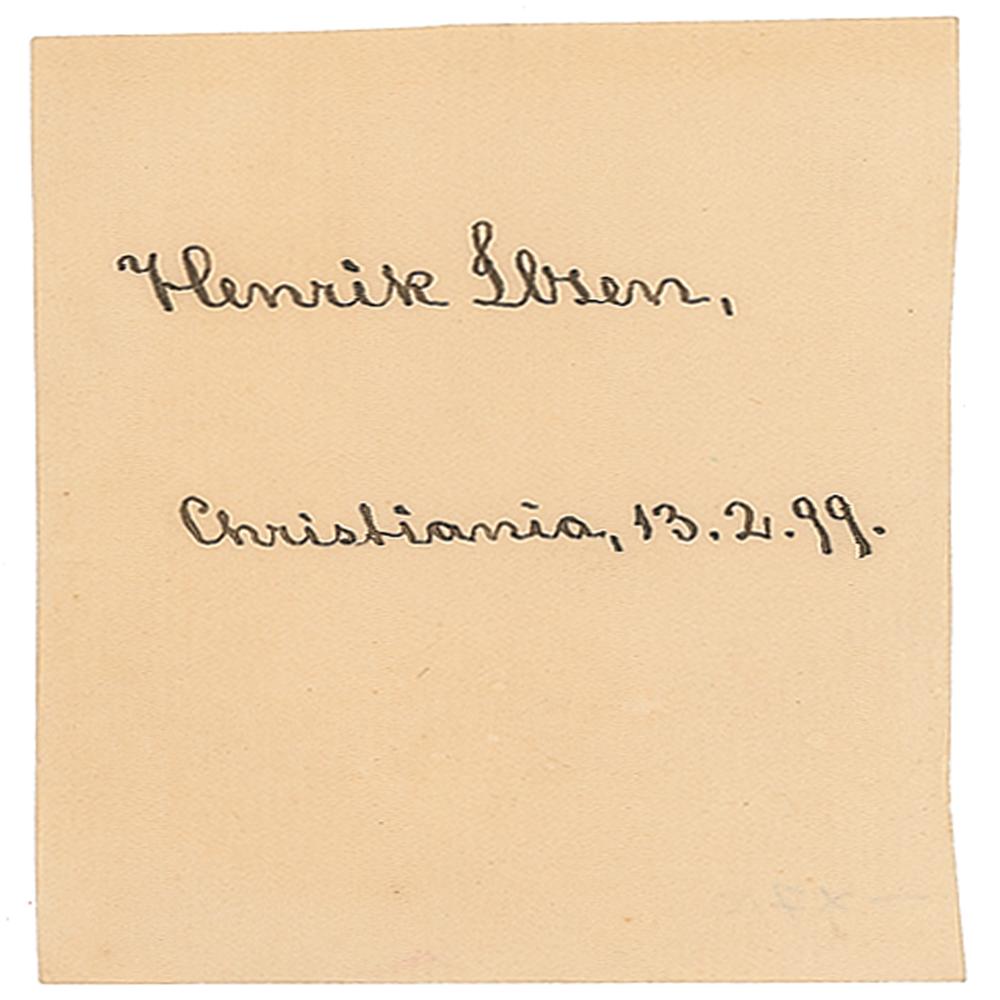 Henrik Ibsen,
Christiania, 13.2.99.